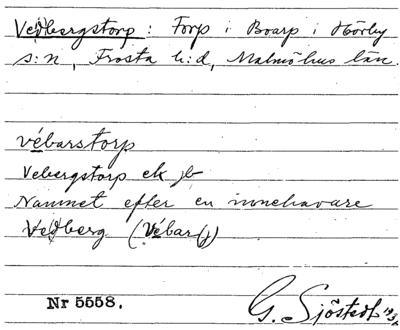 Vedbergstorp: Torp i Boarp i Hörby
s:n, Frosta h:d, Malmöhus län.
vébarstorp
Vebergstorp ek jb
Namnet efter en innehavare
Vedberg (Vébar(j)
Nr 5558.
G. Sjöstedt